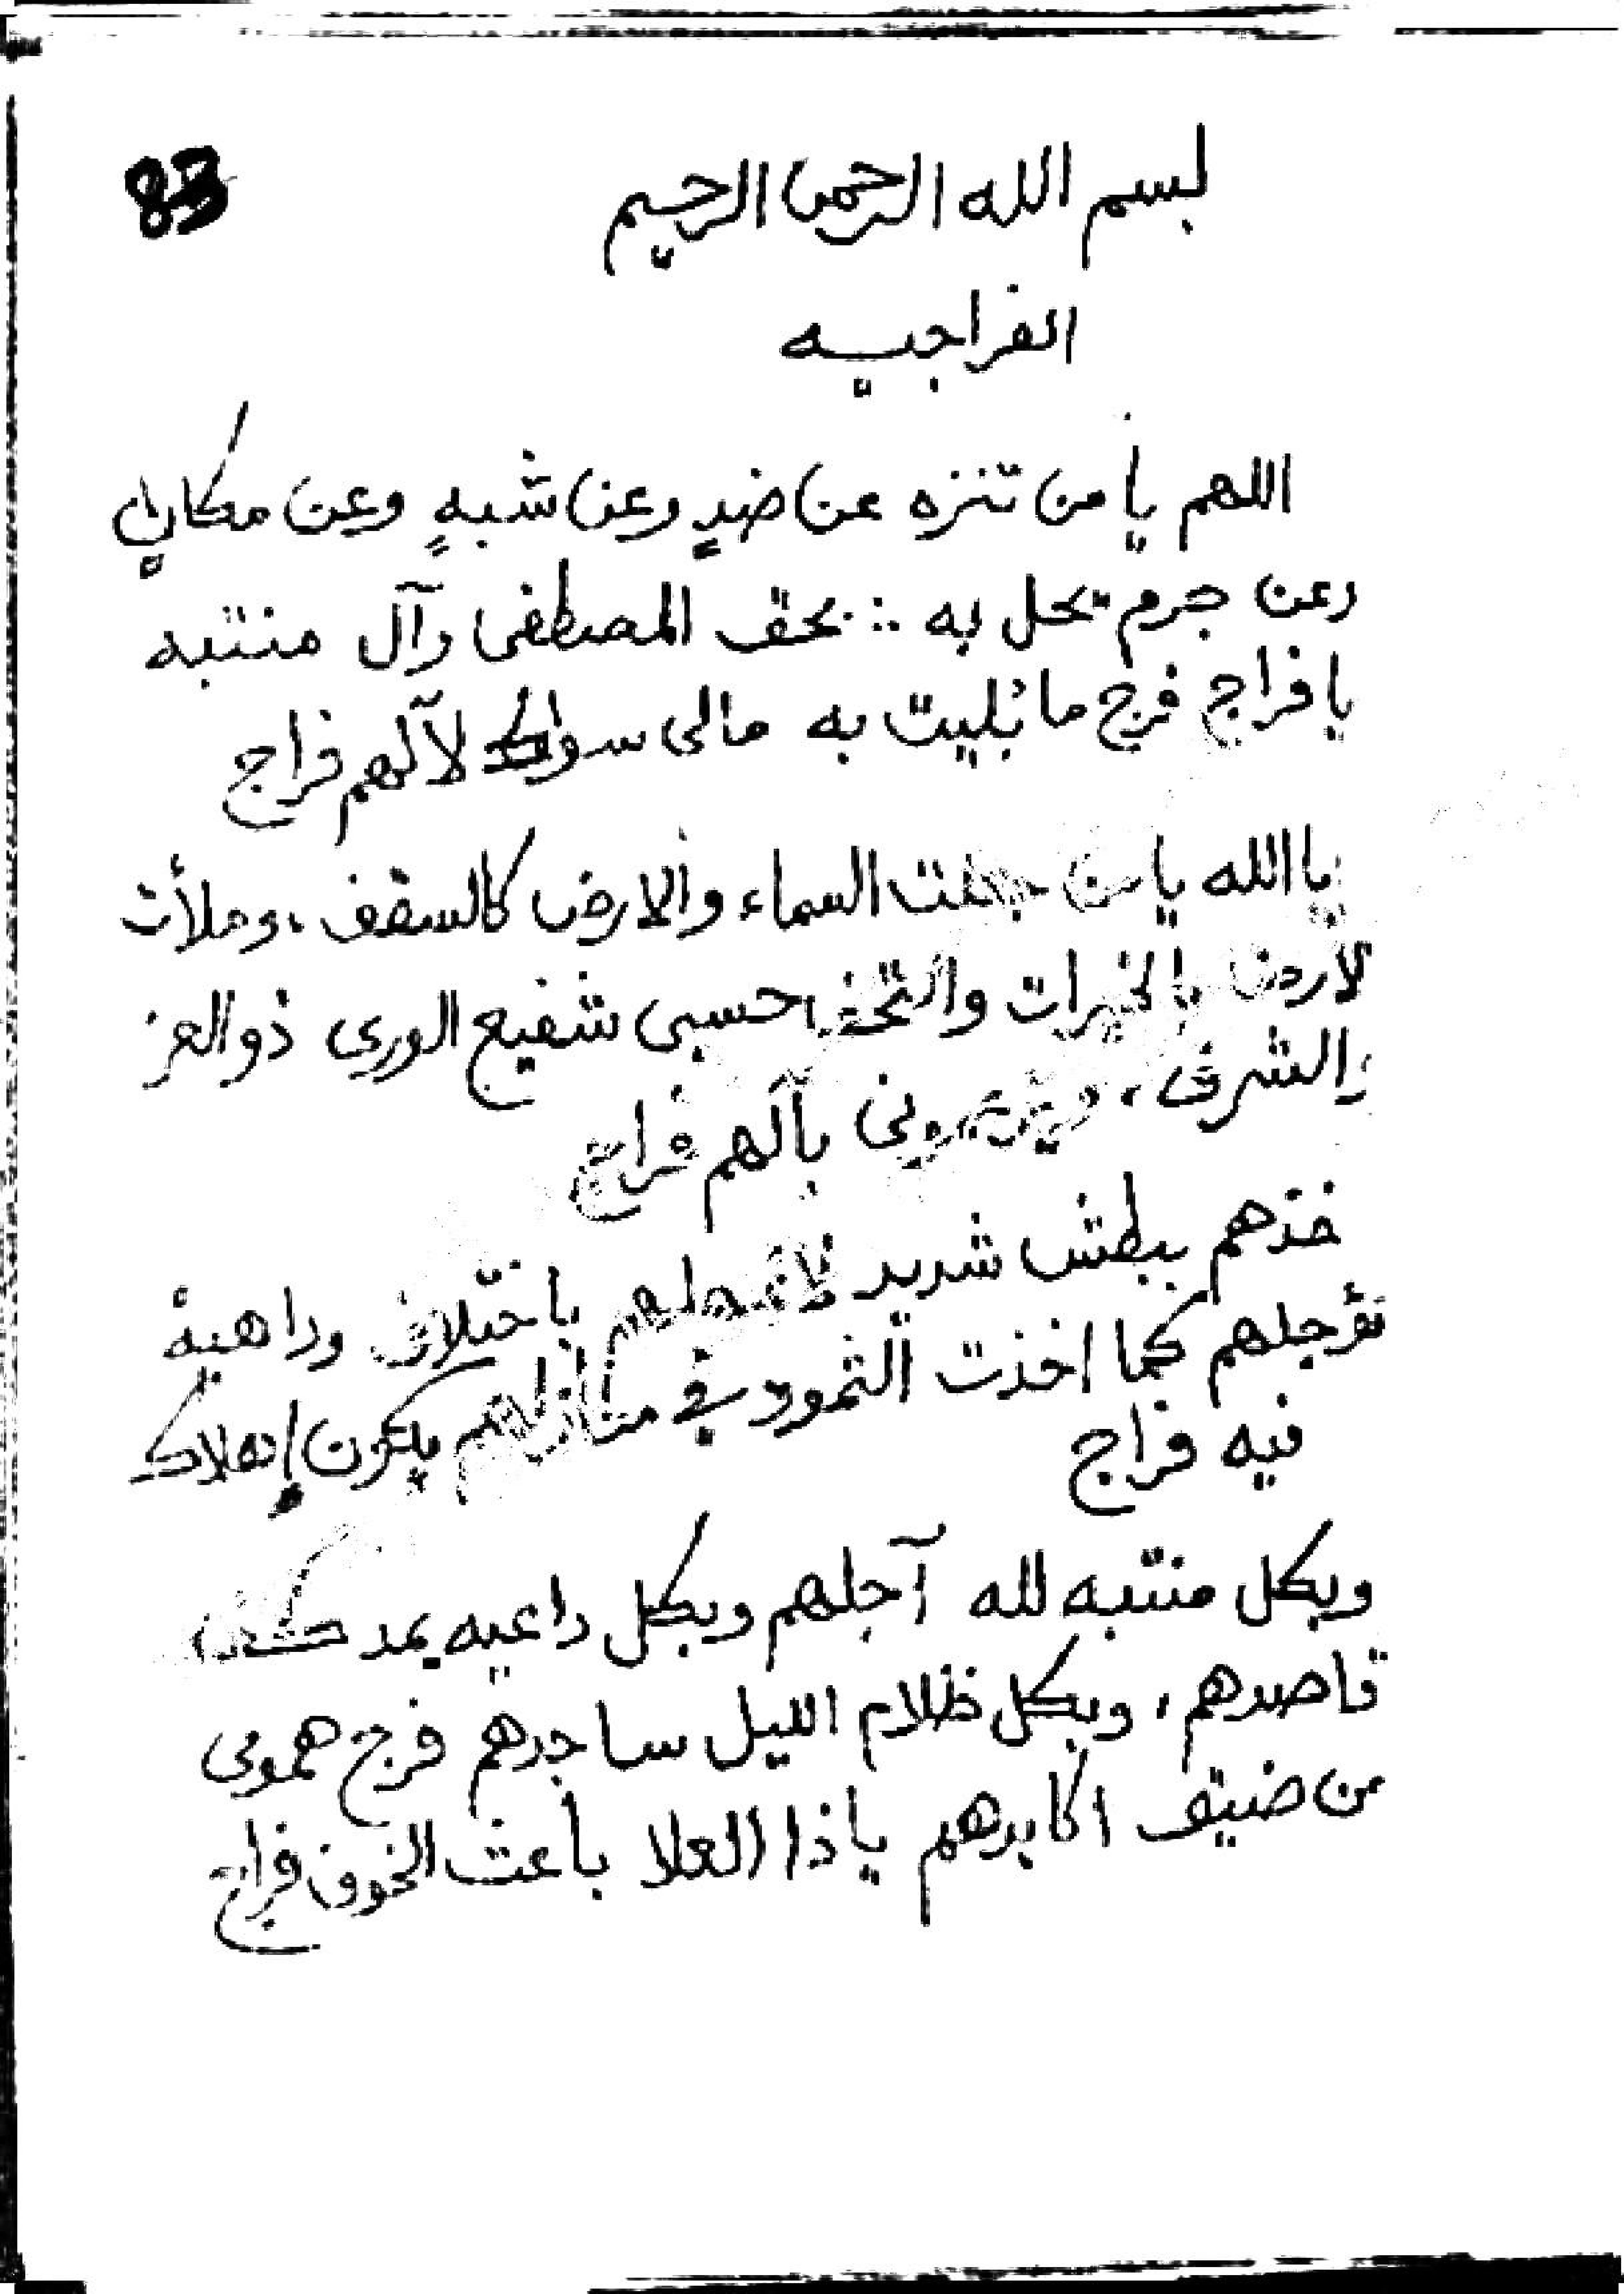 83
بسم الله الرحمن الرحيم
الفراجيه
اللهم يا من تنزه عن ضدٍ وعن شبهٍ وعن مكانٍ
وعن جرم يحل به :. بحق المصطفى وآل منتبه
يا فراج فرج ما بُليت به مالى سواك لآلهم فراج
يا الله يا من جعلت السماء والارض كالسقف ، وملأت
لأرض بالخيرات والتحف حسبى شفيع الورى ذو العز
والشرف ، بآلهم فراج
خذهم ببطش شديد باختلاف وداهية
نؤجلهم كما اخذت الثمود في منازلهم يكون إهلاك
فيه فراج
وبكل منتبه لله آجلهم وبكل داعيه يمد
قاصدهم ، وبكل ظلام الليل ساجدهم فرج همومى
من ضيق اكابدهم يا ذا العلا باعث الخوف فراج